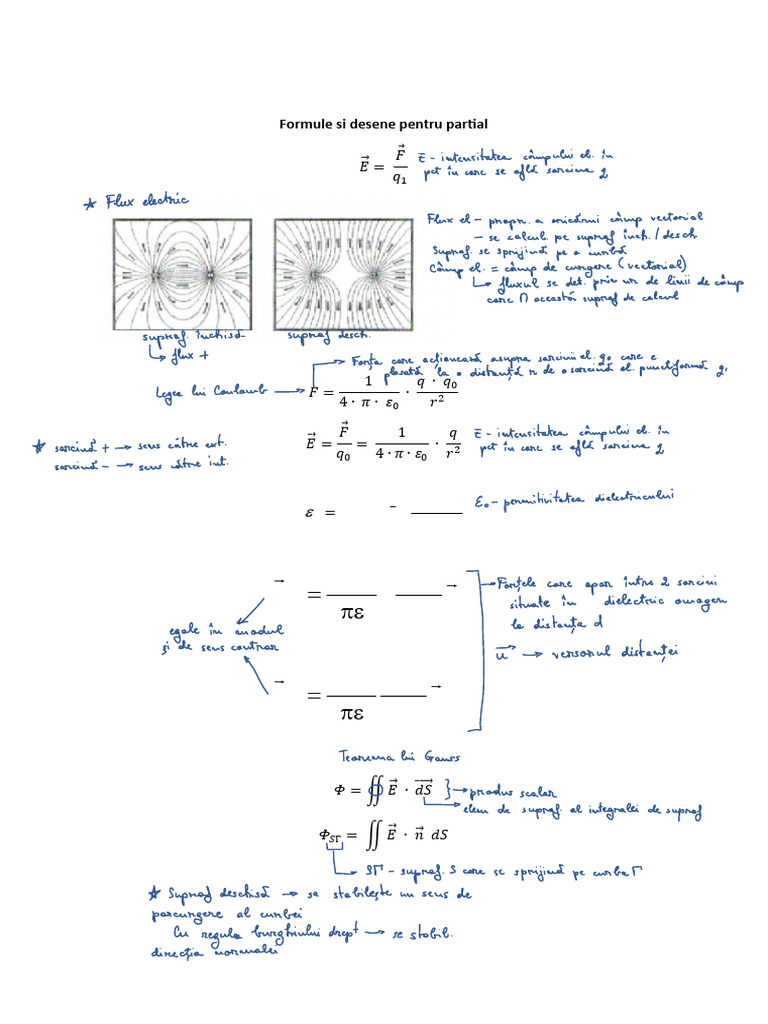 Formule si desene pentru partial
E⃗ = F⃗ / q₁
Ē - intensitatea câmpului el. în
pct în care se află sarcina q
* Flux electric
Flux el - propr. a oricărui câmp vectorial
- se calcul. pe supraf înch./desch
Supraf. se sprijină pe o curbă
Câmp el. = câmp de curgere (vectorial)
fluxul se det. prin nr. de linii de câmp
care ∩ această supraf de calcul
supraf. închisă
flux +
supraf desch.
Forța care acționează asupra sarcinii el. q₀ care e
plasată la o distanță r de o sarcină el. punctiformă q,
Legea lui Coulomb → F = 1 / (4 · π · ε₀) · (q · q₀) / r²
* sarcină + → sens către ext.
sarcină - → sens către int.
E⃗ = F⃗ / q₀ = 1 / (4 · π · ε₀) · q / r²
Ē - intensitatea câmpului el. în
pct în care se află sarcina q
ε =
ε₀ - permitivitatea dielectricului
→ = →
πε
Forțele care apar între 2 sarcini
situate în dielectric omogen
la distanța d
u⃗ → versorul distanței
egale în modul
și de sens contrar
→ = →
πε
Teorema lui Gauss
Φ = ∯ E⃗ · dS⃗ } → produs scalar
elem de supraf. al integralei de supraf
Φ_SΓ = ∬ E⃗ · n⃗ dS
SΓ - supraf. S care se sprijină pe curba Γ
* Supraf deschisă → se stabilește un sens de
parcurgere al curbei
Cu regula burghiului drept → se stabil.
direcția normalei